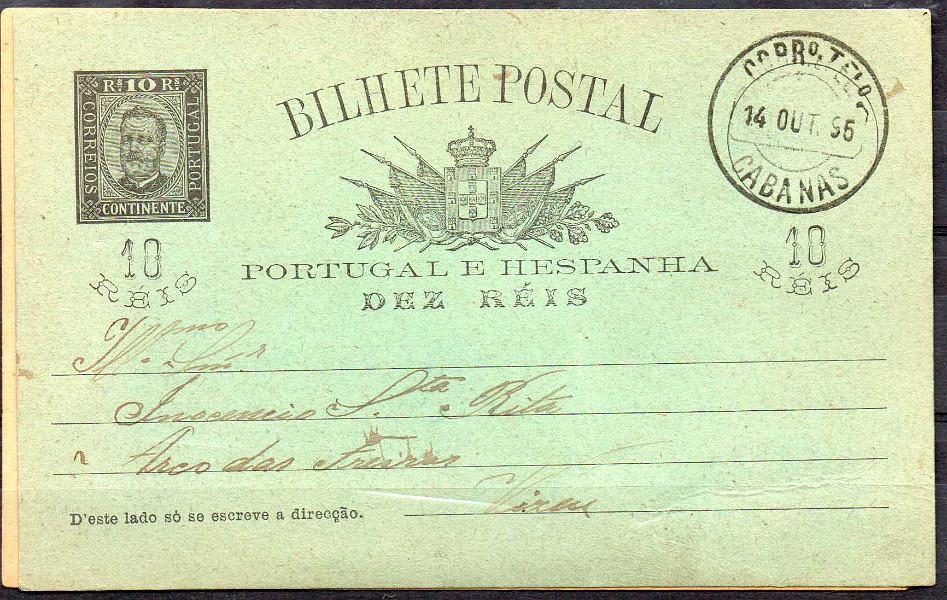 BILHETE POSTAL
Rs 10 Rs
CORREIOS
PORTUGAL
CONTINENTE
CORRO. TELO.
14 OUT. 95
CABANAS
10
RÉIS
10
RÉIS
PORTUGAL E HESPANHA
DEZ RÉIS
Illmo Snr
Inocencio S.ta Rita
Arco das Freiras
Vizeu
D'este lado só se escreve a direcção.